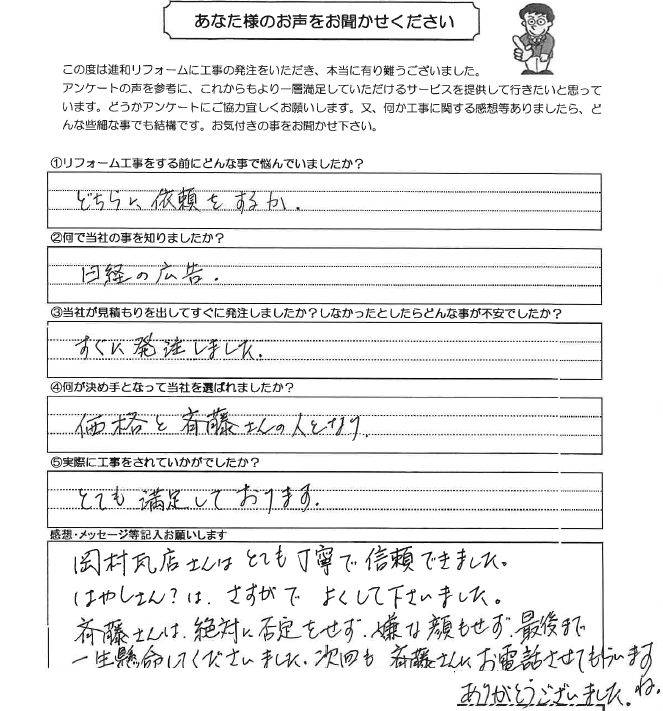 あなた様のお声をお聞かせください
この度は進和リフォームに工事の発注をいただき、本当に有り難うございました。
アンケートの声を参考に、これからもより一層満足していただけるサービスを提供して行きたいと思って
います。どうかアンケートにご協力宜しくお願いします。又、何か工事に関する感想等ありましたら、ど
んな些細な事でも結構です。お気付きの事をお聞かせ下さい。
①リフォーム工事をする前にどんな事で悩んでいましたか？
どちらに依頼をするか.
②何で当社の事を知りましたか？
日経の広告.
③当社が見積もりを出してすぐに発注しましたか？しなかったとしたらどんな事が不安でしたか？
すぐに発注しました.
④何が決め手となって当社を選ばれましたか？
価格と斉藤さんの人となり.
⑤実際に工事をされていかがでしたか？
とても満足しております.
感想・メッセージ等記入お願いします
岡村瓦店さんはとても丁寧で信頼できました。
はやしさん？は、さすがで よくして下さいました。
斉藤さんは、絶対に否定をせず、嫌な顔もせず、最後まで
一生懸命してくださいました.次回も 斉藤さんにお電話させてもらいます
ね.
ありがとうございました.